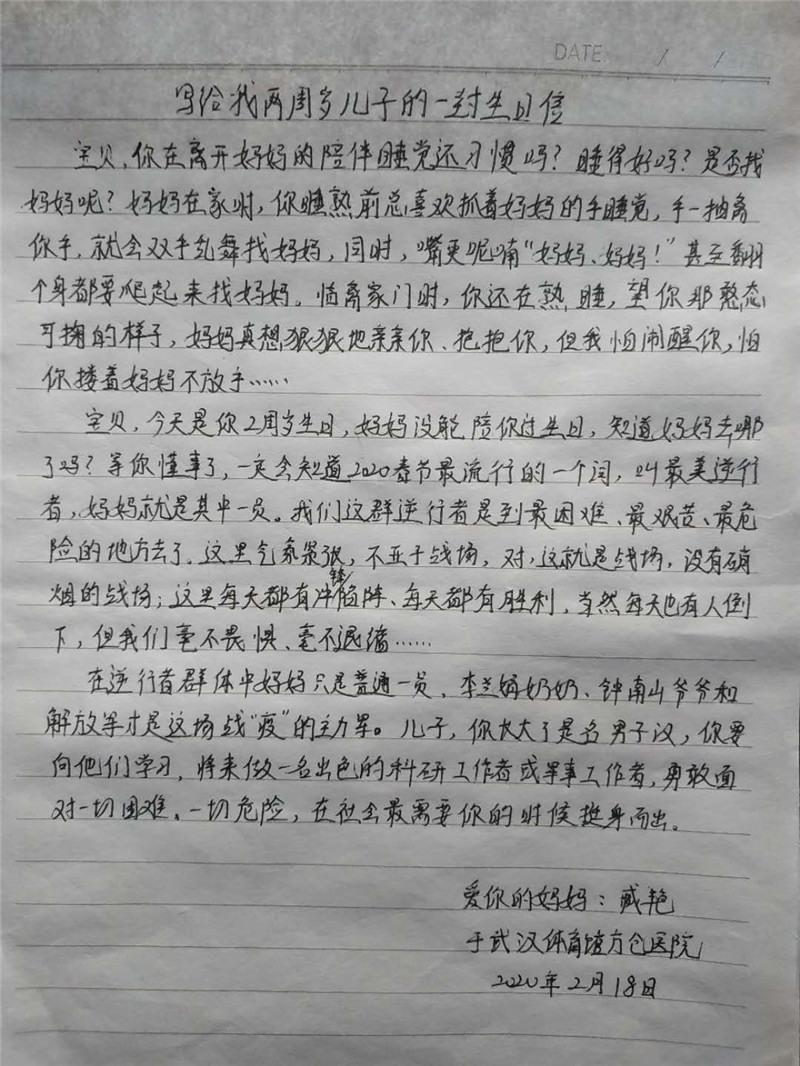 DATE: / /
写给我两周岁儿子的一封生日信
宝贝,你在离开妈妈的陪伴睡觉还习惯吗?睡得好吗?是否找
妈妈呢?妈妈在家时,你睡熟前总喜欢抓着妈妈的手睡觉,手一抽离
你手,就会双手乱舞找妈妈,同时,嘴更呢喃“妈妈、妈妈!”甚至翻
个身都要爬起来找妈妈。临离家门时,你还在熟睡,望你那憨态
可掬的样子,妈妈真想狠狠地亲亲你、抱抱你,但我怕闹醒你,怕
你搂着妈妈不放手……
宝贝,今天是你2周岁生日,妈妈没能陪你过生日,知道妈妈去哪
了吗?等你懂事了,一定会知道2020春节最流行的一个词,叫最美逆行
者,妈妈就是其中一员。我们这群逆行者是到最困难、最艰苦、最危
险的地方去了。这里气氛紧张,不亚于战场,对,这就是战场,没有硝
烟的战场;这里每天都有冲锋陷阵、每天都有胜利,当然每天也有人倒
下,但我们毫不畏惧、毫不退缩……
在逆行者群体中妈妈只是普通一员,李兰娟奶奶、钟南山爷爷和
解放军才是这场战“疫”的主力军。儿子,你长大了是名男子汉,你要
向他们学习,将来做一名出色的科研工作者或军事工作者,勇敢面
对一切困难、一切危险,在社会最需要你的时候挺身而出。
爱你的妈妈:臧艳
于武汉体育馆方仓医院
2020年2月18日